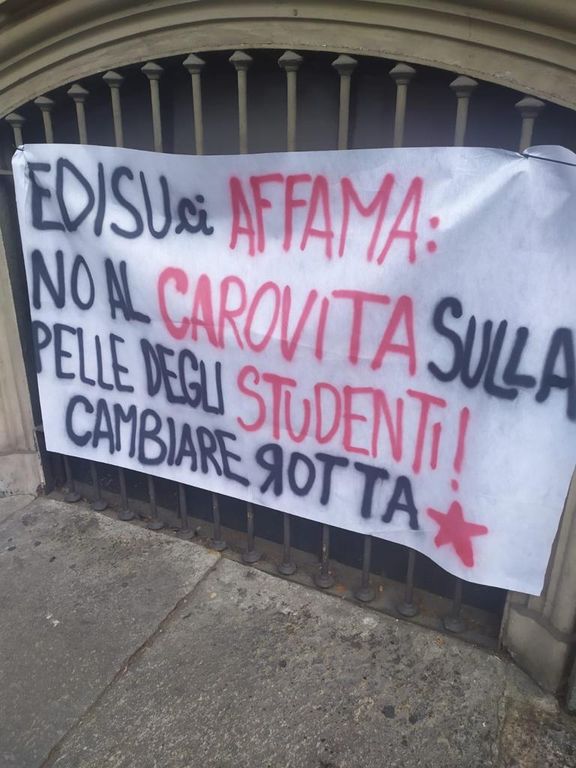 EDISU ci AFFAMA:
NO AL CAROVITA SULLA
PELLE DEGLI STUDENTI!
CAMBIARE ROTTA